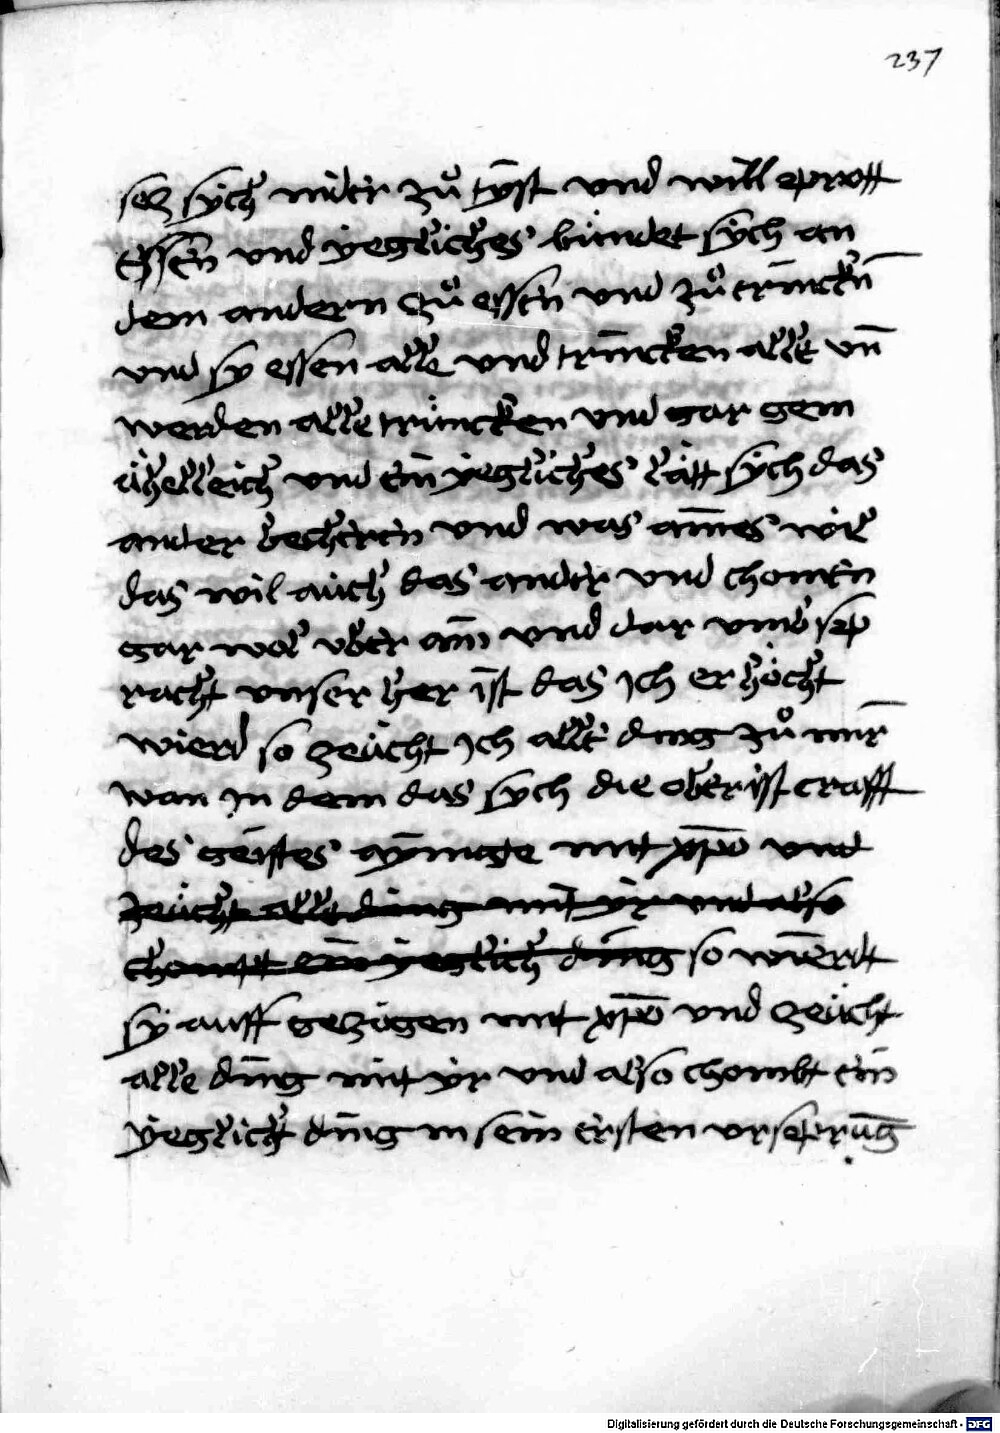 237
secz sych nider zů tyſt vnd will eprott
Eſſen vnd yegliches bindet sych an
dem andern czů eſſen vnd zů trinckn̄
vnd sy eſſen alle vnd trincken alle vn̄
werden alle trüncken vnd gar gem
ähelleich vnd ein yegliches lätt sych das
ander becheren vnd was aīnes wil
das wil auch das ander vnd chomen
gar wol vber ain vnd dar vmb sep
racht vnser her ist das ich er höcht
wierd so zeücht ich alle ding zů mir
wan in dem das sych die oberist crafft
des geistes aynigte mit xp̄o vnd
zeücht alle ding mit yr vnd also
chomptt ein yeglich ding so wierdt
sy auff gezogen mit xp̄o vnd zeücht
alle ding mit yr vnd also chombt ein
yeglicht ding in sein ersten vrseprūg
Digitalisierung gefördert durch die Deutsche Forschungsgemeinschaft - DFG